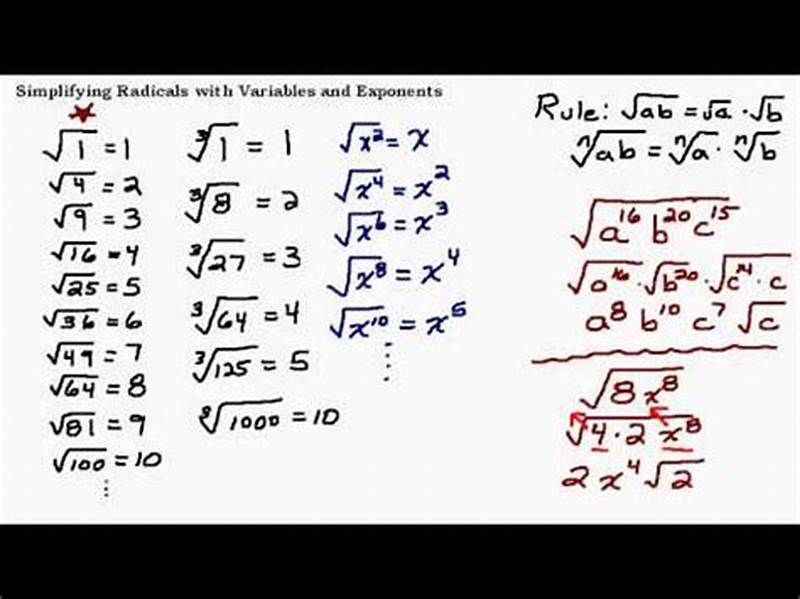 Simplifying Radicals with Variables and Exponents
√1 = 1
√4 = 2
√9 = 3
√16 = 4
√25 = 5
√36 = 6
√49 = 7
√64 = 8
√81 = 9
√100 = 10
⋮
∛1 = 1
∛8 = 2
∛27 = 3
∛64 = 4
∛125 = 5
∛1000 = 10
√x² = x
√x⁴ = x²
√x⁶ = x³
√x⁸ = x⁴
√x¹⁰ = x⁵
⋮
Rule: √ab = √a · √b
ⁿ√ab = ⁿ√a · ⁿ√b
√a¹⁶ b²⁰ c¹⁵
√a¹⁶ · √b²⁰ · √c¹⁴ · c
a⁸ b¹⁰ c⁷ √c
√8x⁸
√4 · 2 x⁸
2 x⁴ √2